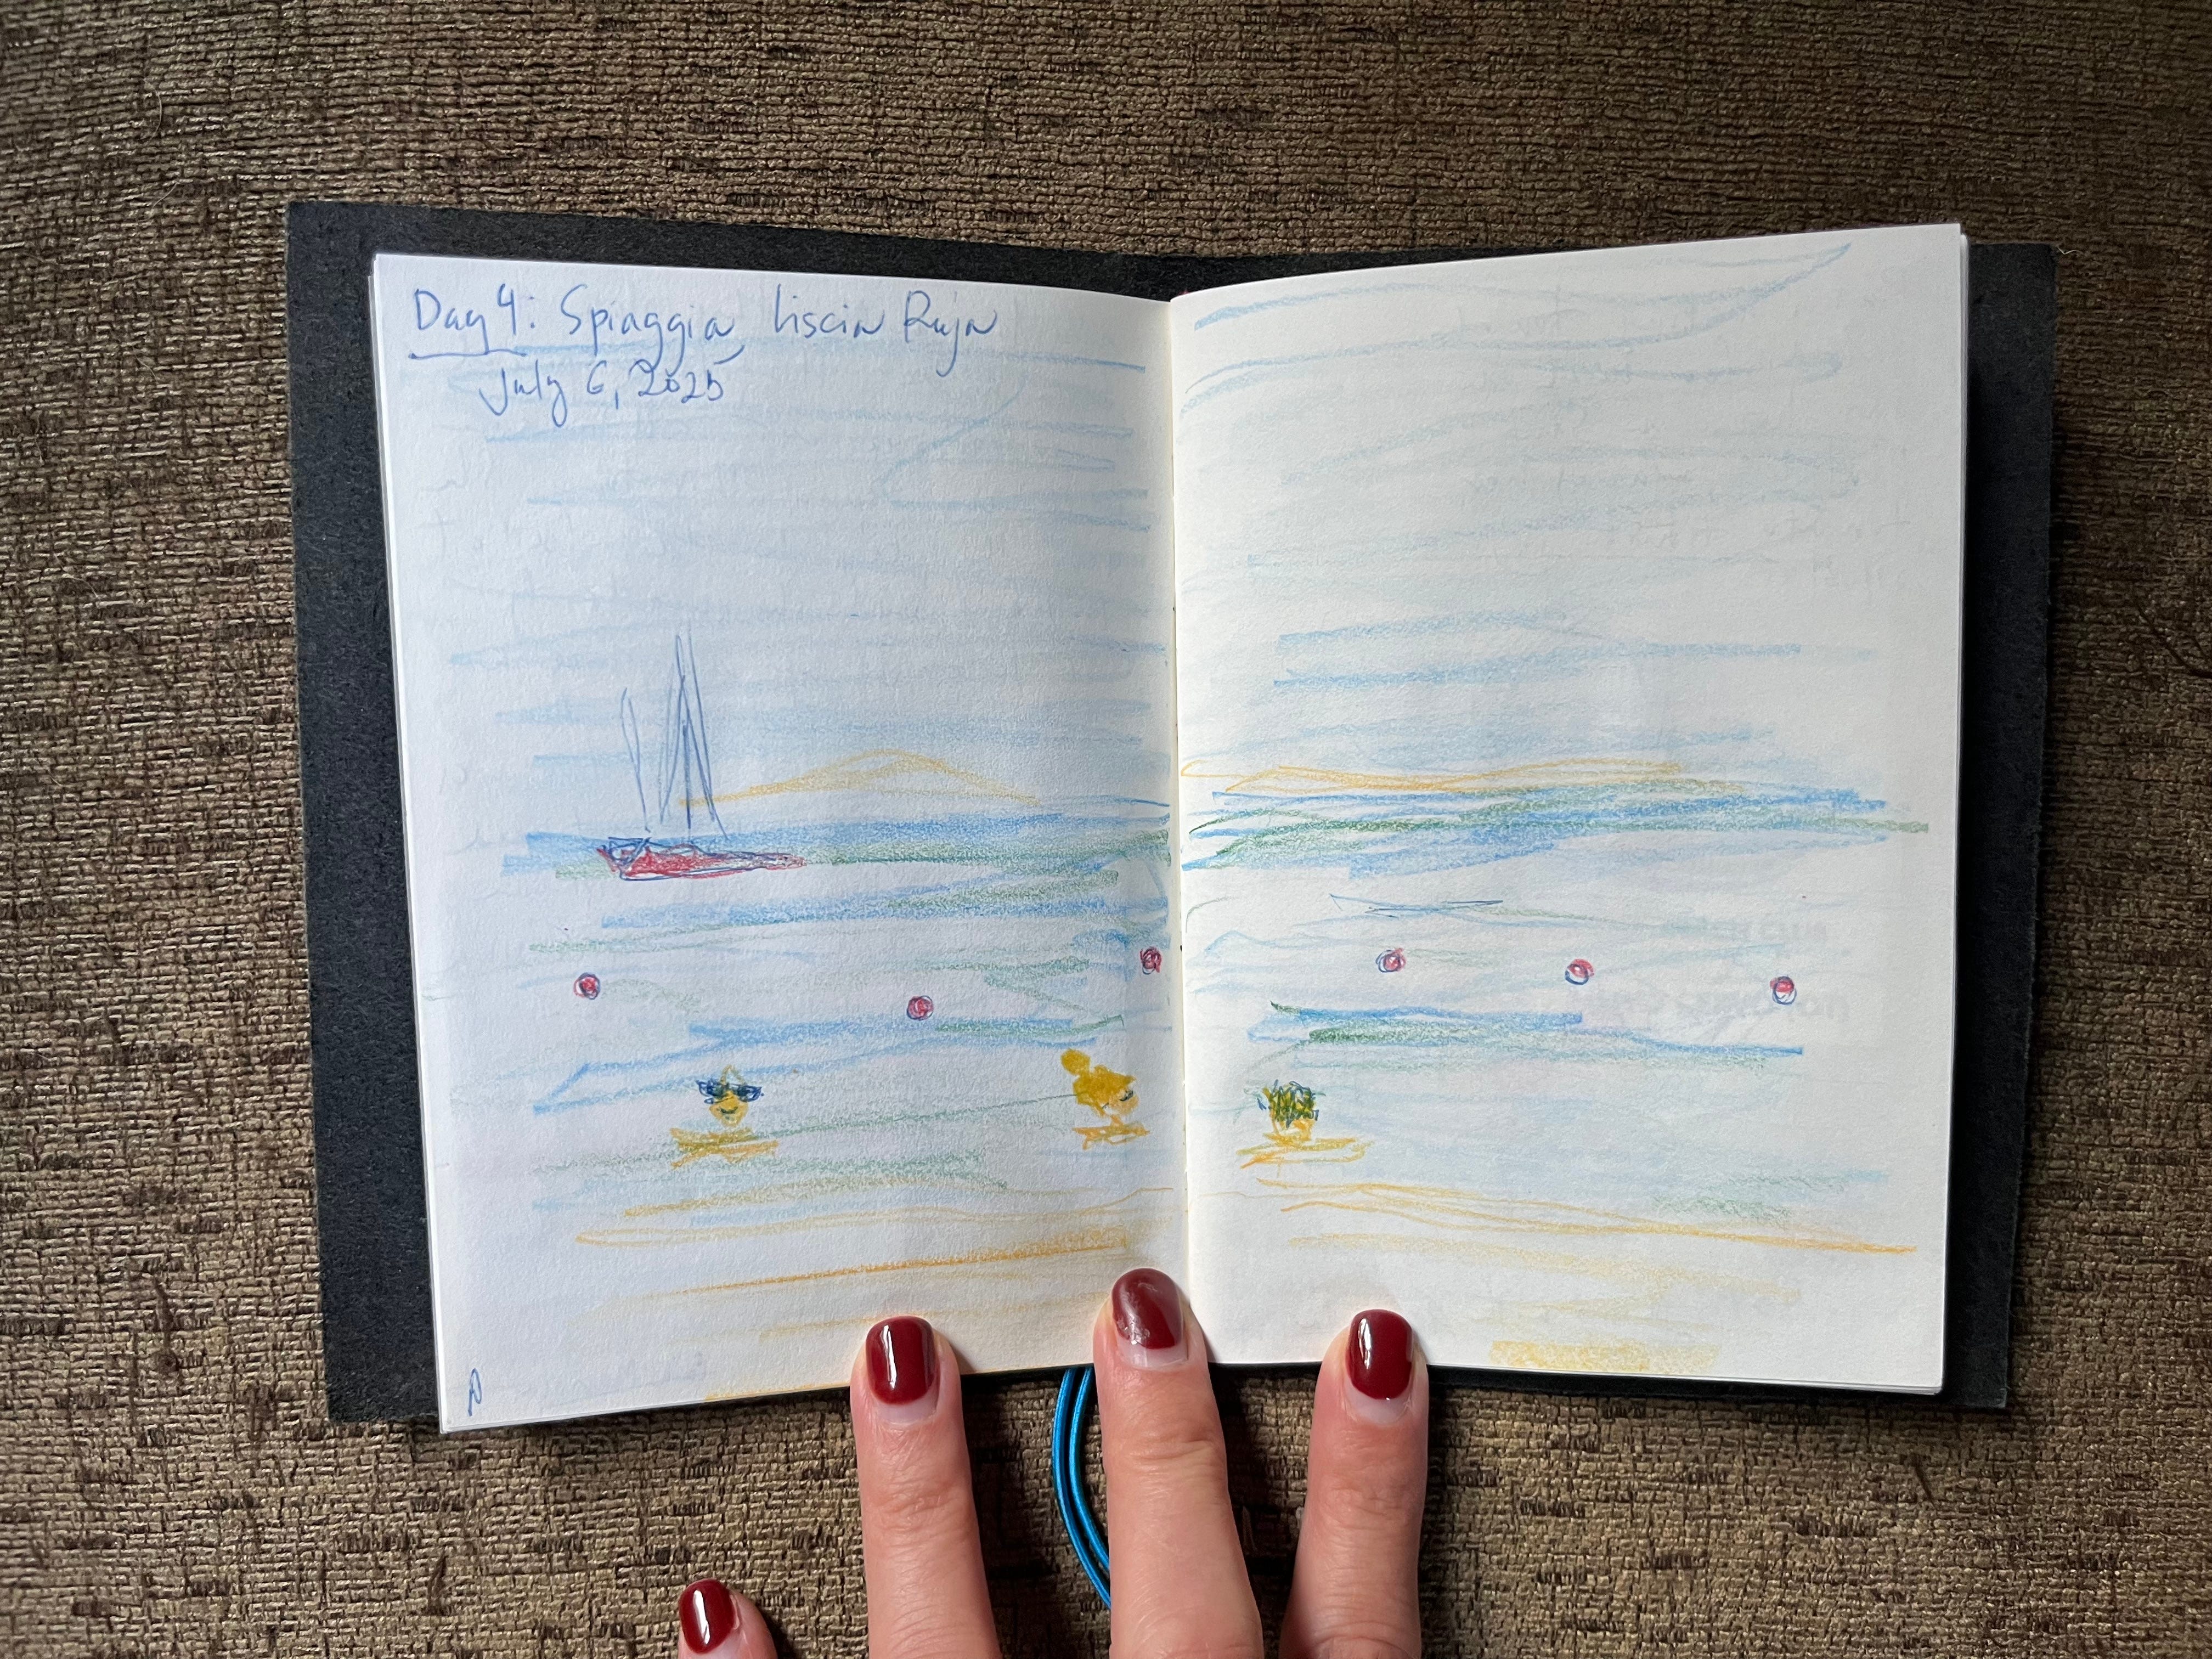 Day 4: Spiaggia Liscia Ruja
July 6, 2025